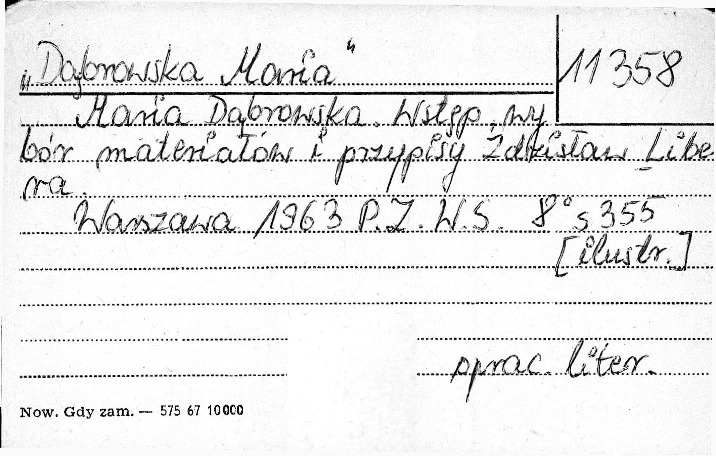 „Dąbrowska Maria“
11358
Maria Dąbrowska. Wstęp, wy
bór materiałów i przypisy Zdzisław Libe
ra.
Warszawa 1963 P.Z.W.S. 8° s 355
[ilustr.]
oprac. liter.
Now. Gdy zam. — 575 67 10000